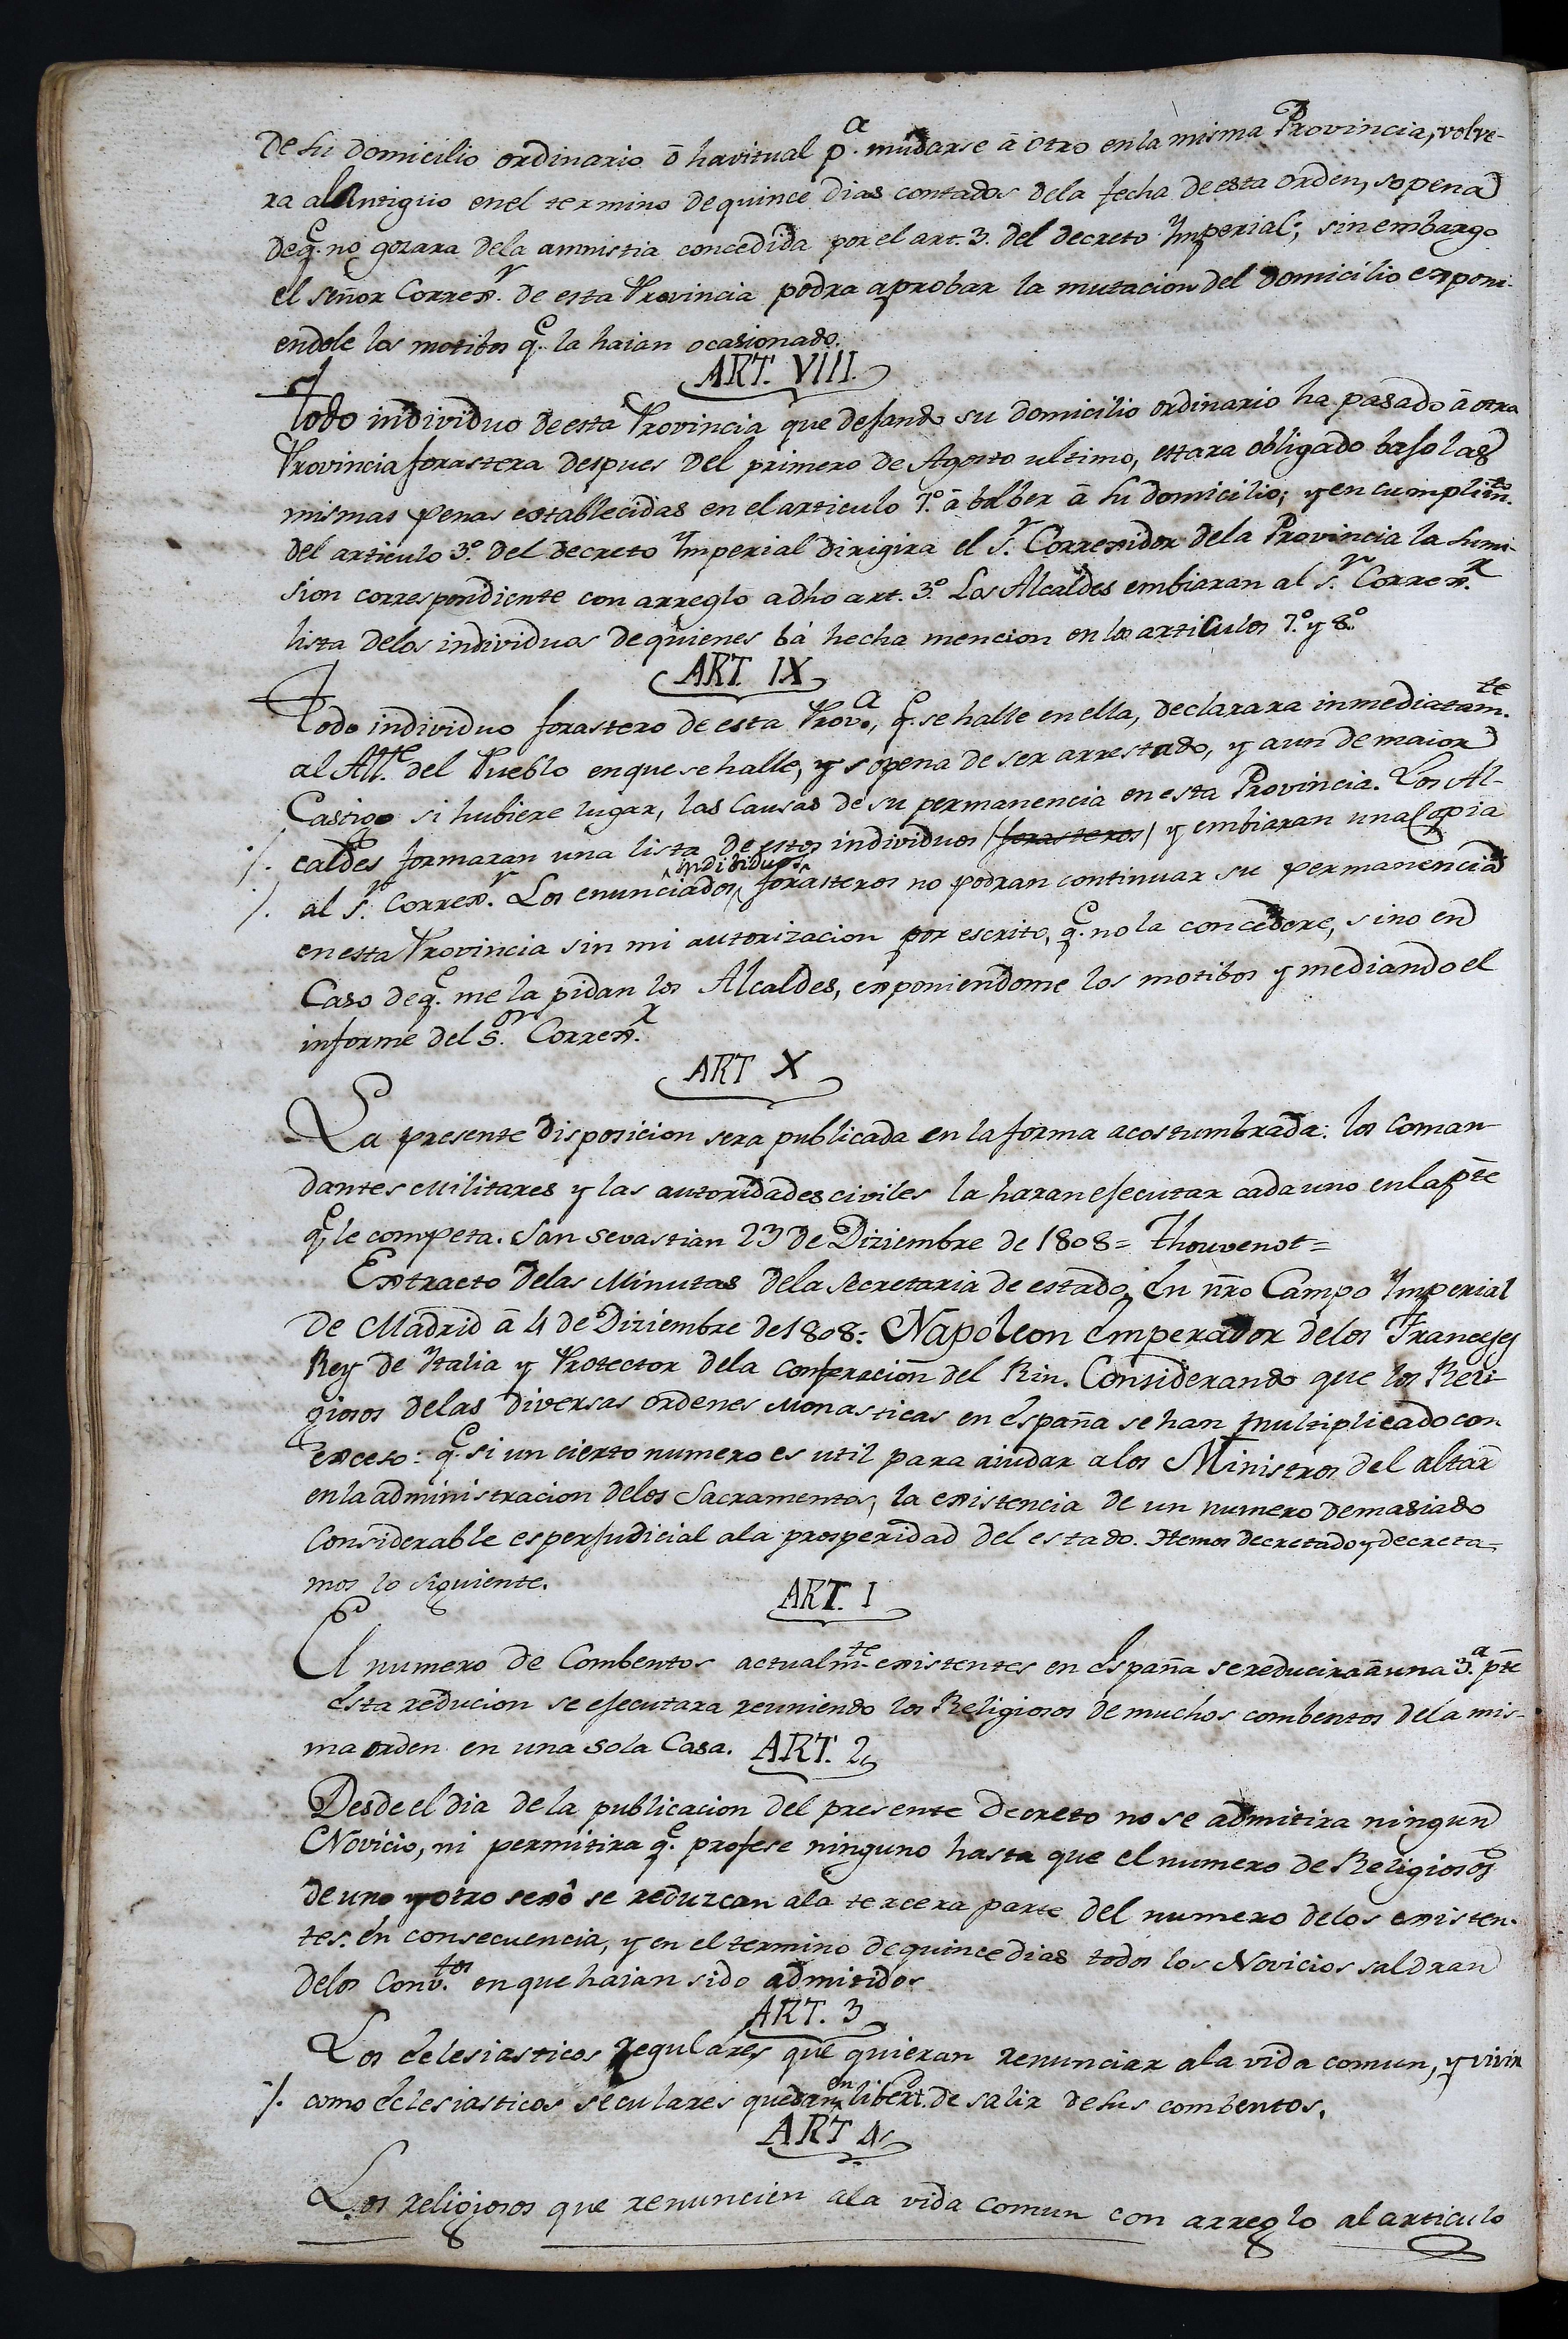 de su domicilio ordinario ô havitual p.ª mudarse â otro en la misma Provincia, volve-
ra al Antiguo en el termino de quince dias contados de la fecha de esta orden, sopena
de q.e no gozara de la amnistia concedida por el art. 3. del decreto Ymperial; sin embargo
el señor Correx.r de esta Provincia podra aprobar la mutacion del domicilio exponi-
endole los motibos q.e la haian ocasionado.
ART. VIII.
Todo individuo de esta Provincia que dejando su domicilio ordinario ha pasado â otra
Provincia forastera despues del primero de Agosto ultimo, estara obligado bajo las
mismas penas establecidas en el articulo 7.º â bolber â su domicilio; y en cumplim.to
del articulo 3.º del decreto Ymperial dirigira el S.r Correxidor de la Provincia la sumi-
sion correspondiente con arreglo a dho art. 3.º Los Alcaldes embiaran al S.r Correx.r
lista de los individuos de quienes bá hecha mencion en los articulos 7.º y 8.º
ART. IX
Todo individuo forastero de esta Prov.ª, q.e se halle en ella, declarara inmediatam.te
al All.e del Pueblo en que se halle, y sopena de ser arrestado, y aun de maior
Castigo si hubiere lugar, las Causas de su permanencia en esta Provincia. Los Al-
./. caldes formaran una lista de estos individuos (forasteros) y embiaran una Copia
./. al S.r Correx.r Los enunciados individuos forasteros no podran continuar su permanencia
en esta Provincia sin mi autorizacion por escrito, q.e no la concedere, sino en
Caso de q.e me la pidan los Alcaldes, exponiendome los motibos y mediando el
informe del S.or Correx.r
ART X
La presente disposicion sera publicada en la forma acostumbrada: los Coman-
dantes Militares y las autoridades civiles la haran ejecutar cada uno en la pte
q.e le competa. San Sevastian 23 de Diziembre de 1808= Thouvenot=
Extracto de las Minutas de la Secretaria de estado. En nro Campo Ymperial
de Madrid â 4 de Diziembre de 1808: Napoleon Emperador de los Franceses
Rey de Ytalia y Protector de la Conferacion del Rin. Considerando que los Reli-
giosos de las diversas ordenes Monasticas en España se han multiplicado con
exceso: q.e si un cierto numero es util para aiudar a los Ministros del altar
en la administracion de los Sacramentos, la existencia de un numero demasiado
Considerable es perjudicial a la prosperidad del estado. Hemos decretado y decreta-
mos lo siguiente.
ART. I
El numero de Combentos actualm.te existentes en España se reducira â una 3.ª pte
Esta reducion se ejecutara reuniendo los Religiosos de muchos combentos de la mis-
ma orden en una sola Casa. ART. 2
Desde el dia de la publicacion del presente Decreto no se admitira ningun
Novicio, ni permitira q.e profese ninguno hasta que el numero de Religiosos
de uno y otro sexô se reduzcan a la tercera parte del numero de los existen-
tes. En consecuencia, y en el termino de quince dias todos los Novicios saldran
de los Conv.tos en que haian sido admitidos
ART. 3
Los Eclesiasticos regulares que quieran renunciar a la vida comun, y vivir
./. como eclesiasticos seculares quedan en libert. de salir de sus combentos.
ART 4
Los religiosos que renuncien a la vida comun con arreglo al articulo